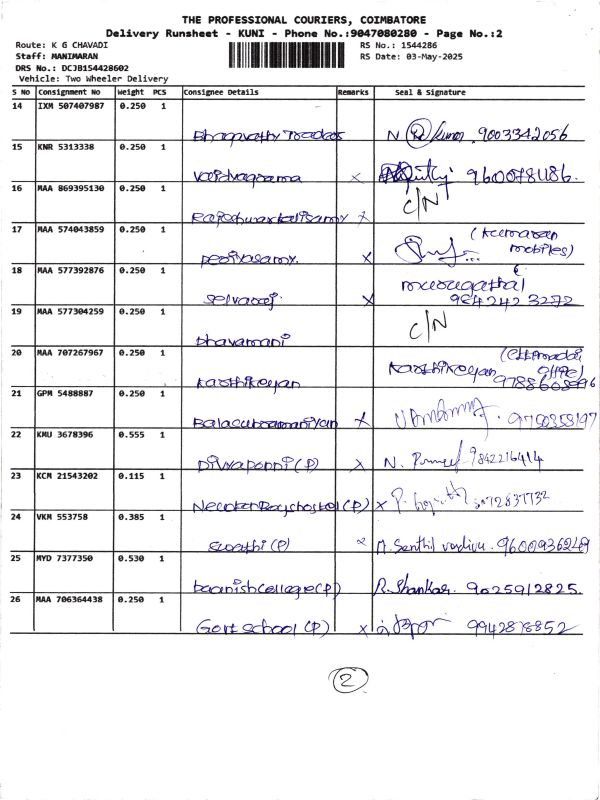 THE PROFESSIONAL COURIERS, COIMBATORE
Delivery Runsheet - KUNI - Phone No.:9047080280 - Page No.:2
Route: K G CHAVADI
RS No.: 1544286
Staff: MANIMARAN
RS Date: 03-May-2025
DRS No.: DCJB154428602
Vehicle: Two Wheeler Delivery
S No Consignment No Weight PCS Consignee Details Remarks Seal & Signature
14 IXM 507407987 0.250 1
N kumar 9003342056
15 KNR 5313338 0.250 1
Vaidyagrama x
16 MAA 869395130 0.250 1
C/N
x
17 MAA 574043859 0.250 1
(kumaran
mobiles)
periyasamy. x
18 MAA 577392876 0.250 1
murugathal
Selvaraj. x 984242 3272
19 MAA 577304259 0.250 1
C/N
bhavamani
20 MAA 707267967 0.250 1
Karthikeyan
karthikeyan
21 GPM 5488887 0.250 1
Balasubramaniyan x
22 KMU 3678396 0.555 1
Divyaponni (P) x N. 9842216414
23 KCM 21543202 0.115 1
(P) x P.
24 VKM 553758 0.385 1
Swathi (P) x M. Senthil vadivu. 9600936269
25 MYD 7377350 0.530 1
college (P) R. Shankar. 9025912825.
26 MAA 706364438 0.250 1
Govt school (P) x 9942878852
2